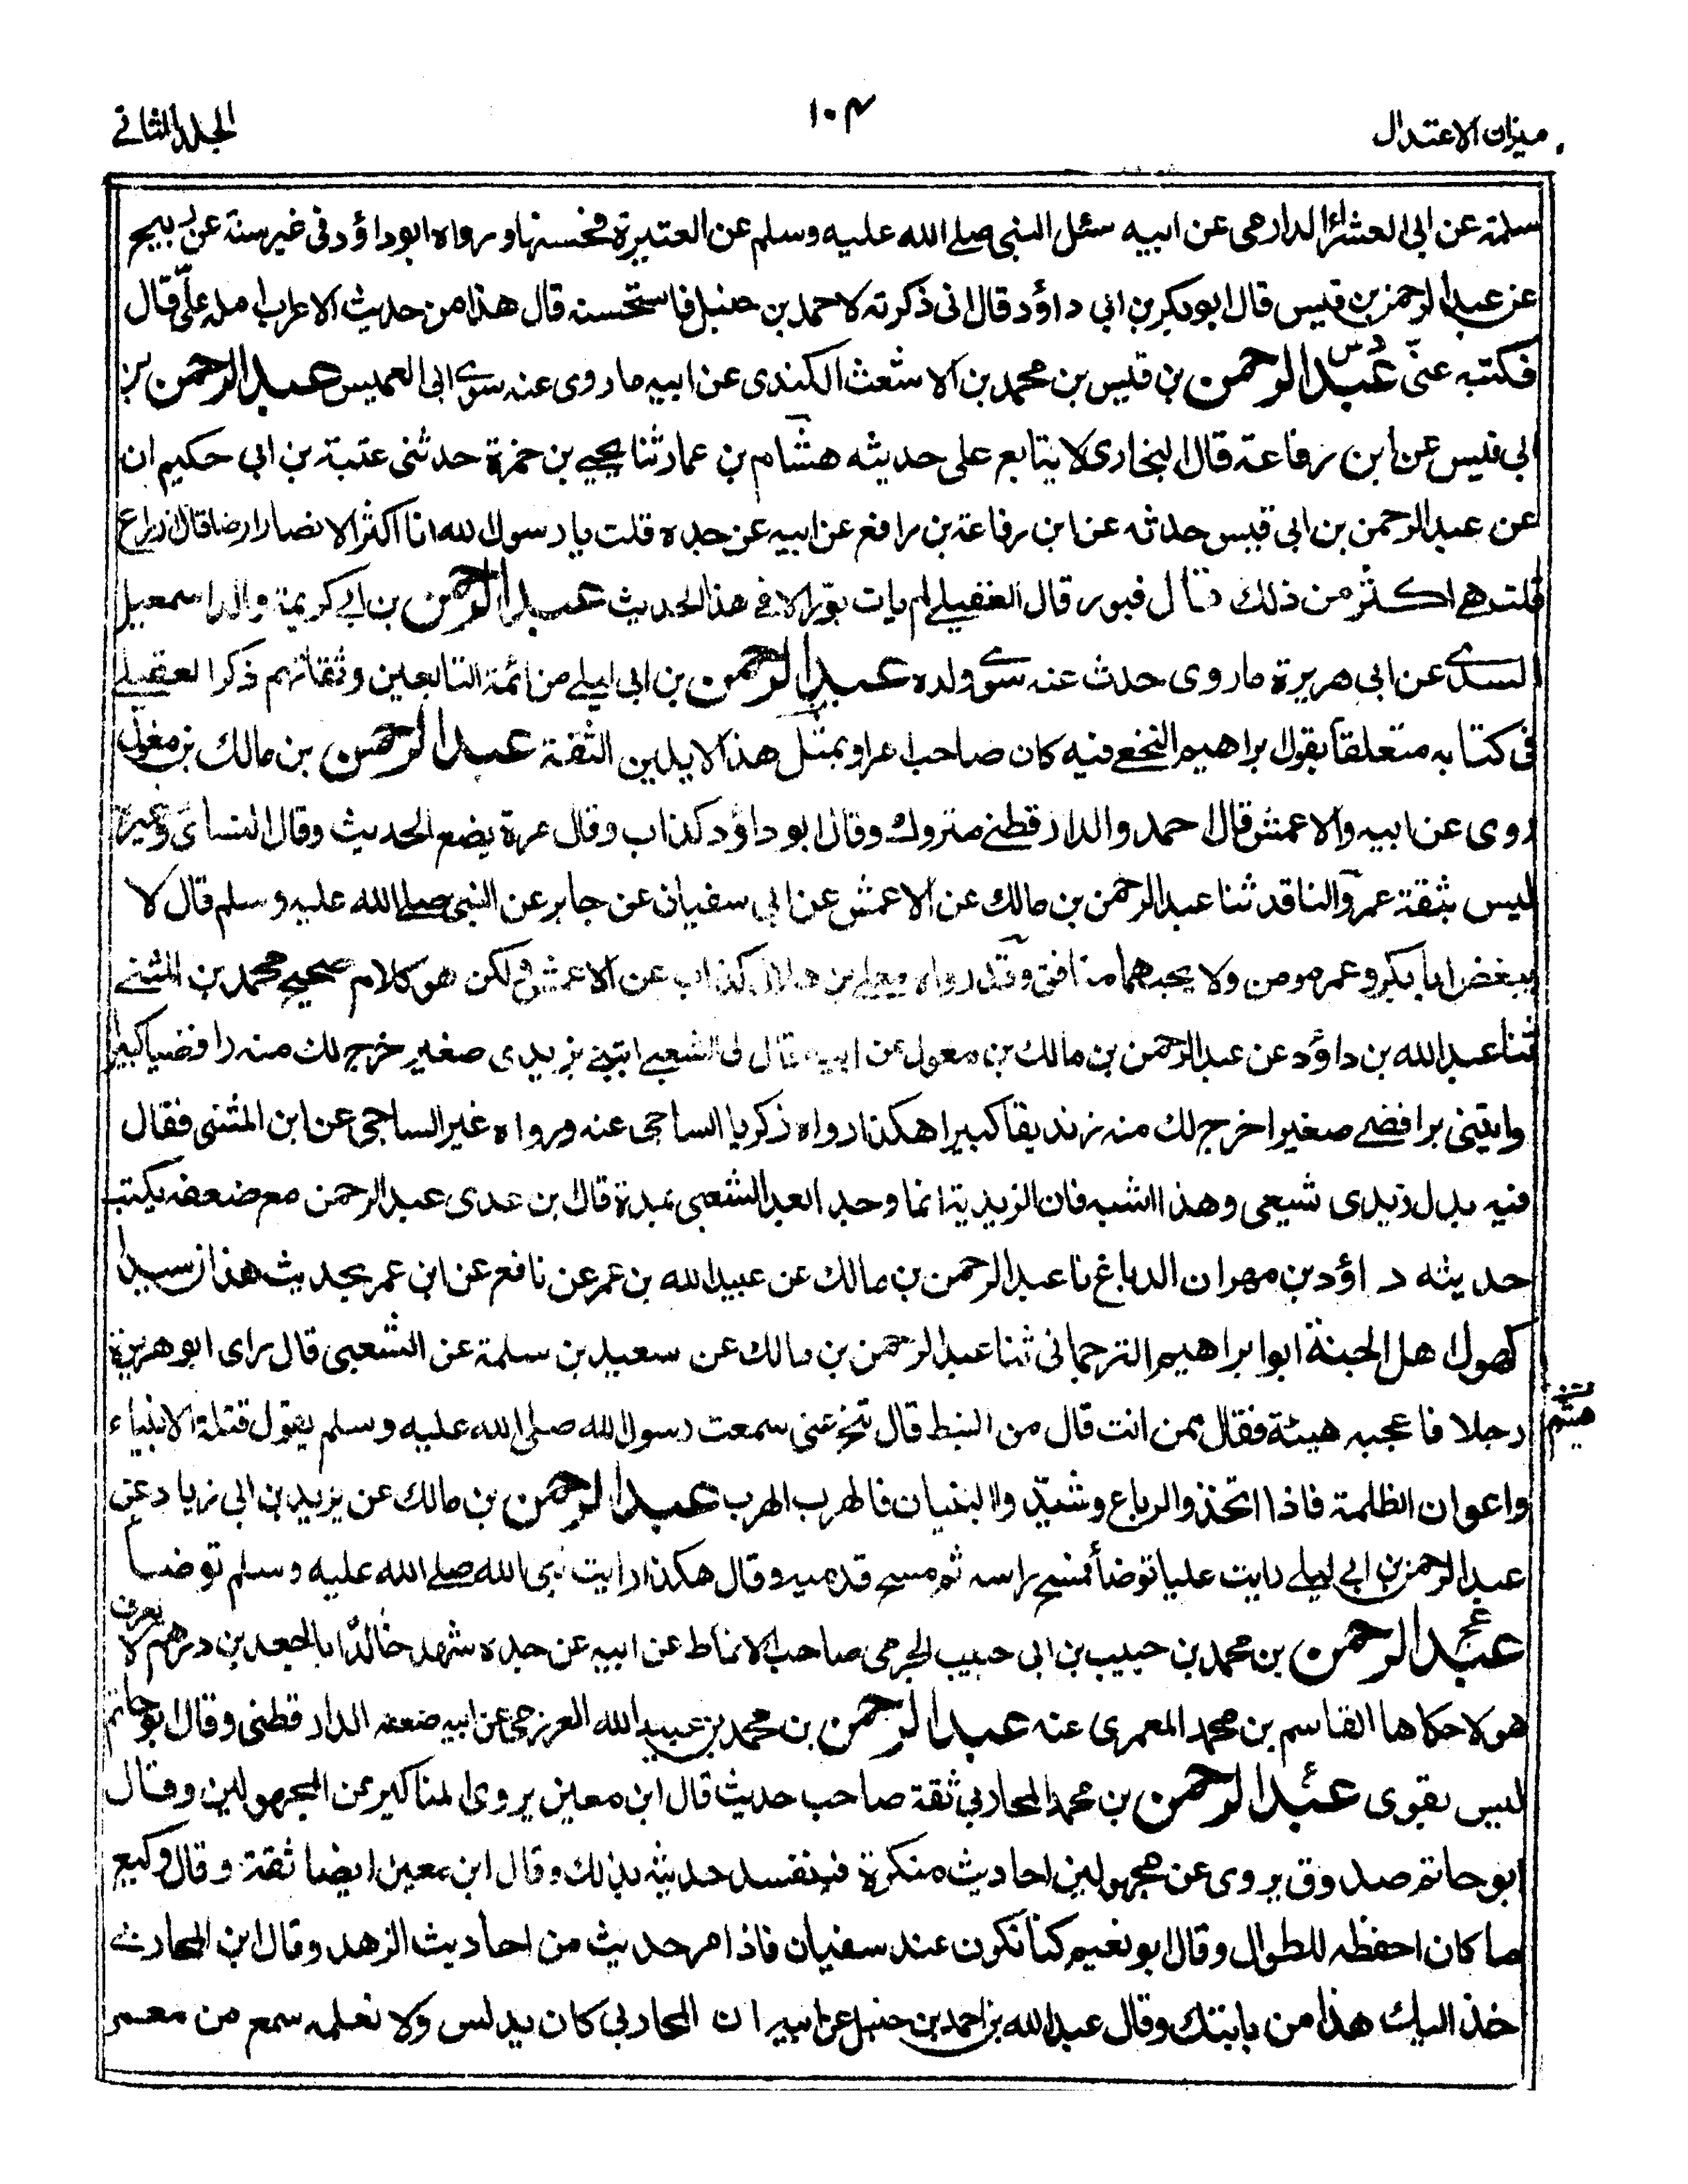 ميزان الاعتدال
١٠٤
الجلد الثانى
سلمة عن ابى العشراء الدارمى عن ابيه سئل النبى صلى الله عليه وسلم عن العتيرة فحسنها ورواه ابو داؤد فى غير سننه عن
عن عبد الرحمن بن قيس قال ابو بكر بن ابى داؤد قال انى ذكرته لاحمد بن حنبل فاستحسنه قال هذا من حديث الاعراب امله على قال
فكتبه عنى عبد الرحمن بن قيس بن محمد بن الاشعث الكندى عن ابيه ما روى عنه سوى ابى العميس عبد الرحمن بن
ابى قيس عن ابن رفاعة قال البخارى لا يتابع على حديثه هشام بن عمار ثنا يحيى بن حمزة حدثنى عتبة بن ابى حكيم ان
عن عبد الرحمن بن ابى قيس حدثه عن ابن رفاعة بن رافع عن ابيه عن جده قلت يا رسول الله انا اكثر الانصار ارضا قال ازرع
قلت هى اكثر من ذلك قال فبور قال العقيلى لم يات بور الا فى هذا الحديث عبد الرحمن بن ابى كريمة والد اسمعيل
السدى عن ابى هريرة ما روى حدث عنه سوى ولده عبد الرحمن بن ابى ليلى من ائمة التابعين وثقاتهم ذكر العقيلى
فى كتابه متعلقا بقول ابراهيم النخعى فيه كان صاحب امراء وبمثل هذا لا يلين الثقة عبد الرحمن بن مالك بن مغول
روى عن ابيه والاعمش قال احمد والدارقطنى متروك وقال ابو داؤد كذاب وقال مرة يضع الحديث وقال النسائى وغيره
ليس بثقة عمرو الناقد ثنا عبد الرحمن بن مالك عن الاعمش عن ابى سفيان عن جابر عن النبى صلى الله عليه وسلم قال لا
يبغض ابا بكر وعمر مومن ولا يحبهما منافق وقد رواه معلى بن هلال كذاب عن الاعمش ولكن هو كلام صحيح محمد بن المثنى
ثنا عبد الله بن داؤد عن عبد الرحمن بن مالك بن مغول عن ابيه قال لى الشعبى ايتنى بزيدى صغير اخرج لك منه رافضيا كبيرا
وايتنى برافضى صغير اخرج لك منه زنديقا كبيرا هكذا رواه ذكريا الساجى عنه ورواه غير الساجى عن ابن المثنى فقال
فيه بدل زيدى شيعى وهذا اشبه فان الزيدية انما وجدوا بعد الشعبى بمدة قال بن عدى عبد الرحمن مع ضعفه يكتب
حديثه داؤد بن مهران الدباغ نا عبد الرحمن بن مالك عن عبيد الله بن عمر عن نافع عن ابن عمر بحديث هذان سيدا
كهول اهل الجنة ابو ابراهيم الترجمانى ثنا عبد الرحمن بن مالك عن سعيد بن سلمة عن الشعبى قال راى ابو هريرة
رجلا فاعجبه هيئة فقال ممن انت قال من النبط قال تنح عنى سمعت رسول الله صلى الله عليه وسلم يقول قتلة الانبياء
واعوان الظلمة فاذا اتخذوا الرباع وشيدوا البنيان فالهرب الهرب عبد الرحمن بن مالك عن يزيد بن ابى زياد عن
عبد الرحمن بن ابى ليلى رايت عليا توضأ فمسح راسه ثم مسح قدميه وقال هكذا رايت نبى الله صلى الله عليه وسلم توضأ
عبد الرحمن بن محمد بن حبيب بن ابى حبيب الجرمى صاحب الانماط عن ابيه عن جده شهد خالدا بالجعد بن درهم لا يعرف
هولا حكاها القاسم بن محمد المعمرى عنه عبد الرحمن بن محمد بن عبيد الله العرزمى عن ابيه ضعفه الدارقطنى وقال ابو حاتم
ليس بقوى عبد الرحمن بن محمد المحاربى ثقة صاحب حديث قال ابن معين يروى المناكير عن المجهولين وقال
ابو حاتم صدوق يروى عن مجهولين احاديث منكرة فيفسد حديثه بذلك وقال ابن معين ايضا ثقة وقال وكيع
ما كان احفظه للطوال وقال ابو نعيم كنا نكون عند سفيان فاذا مر حديث من احاديث الزهد وقال ابن المحاربى
خذ اليك هذا من بابتك وقال عبد الله بن احمد بن حنبل عن ابيه ان المحاربى كان يدلس ولا نعلمه سمع من معمر